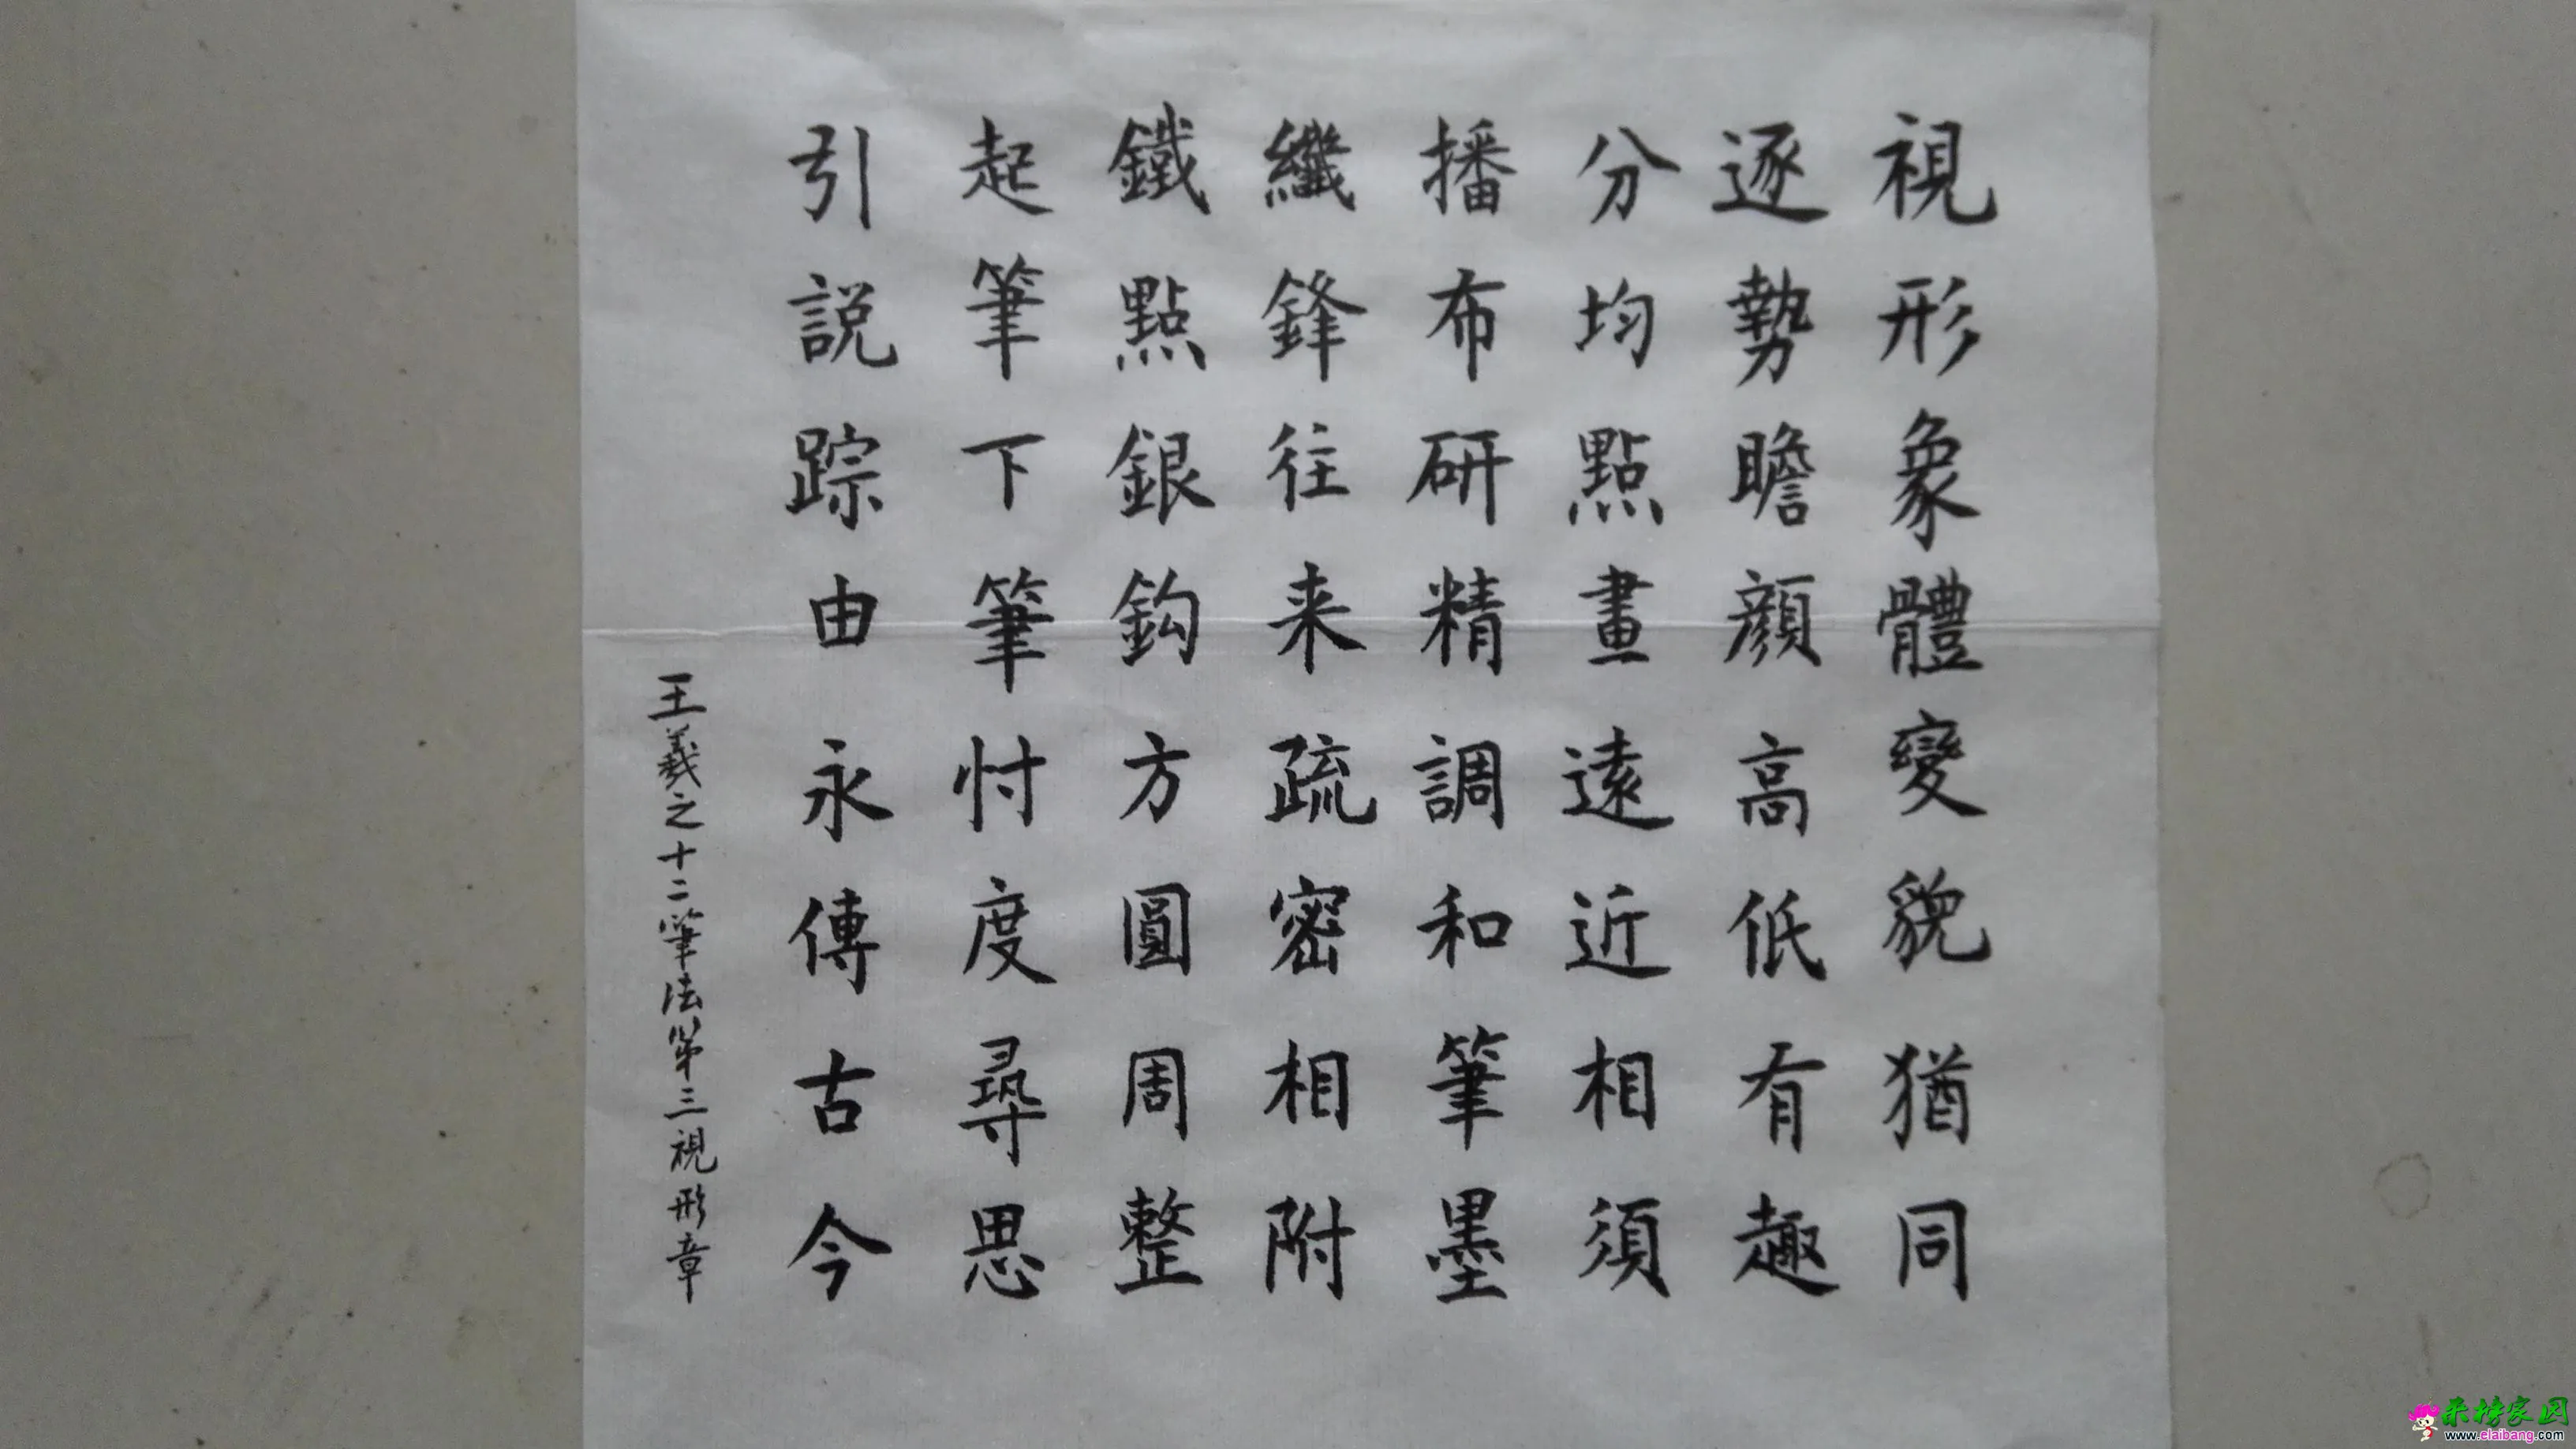 視形象體變貌猶同
逐勢瞻顔高低有趣
分均點畫遠近相須
播布研精調和筆墨
纖鋒往来疏密相附
鐵點銀鈎方圓周整
起筆下筆忖度尋思
引説踪由永傳古今
王羲之十二筆法第三視形章
来榜家园
www.elaibang.com